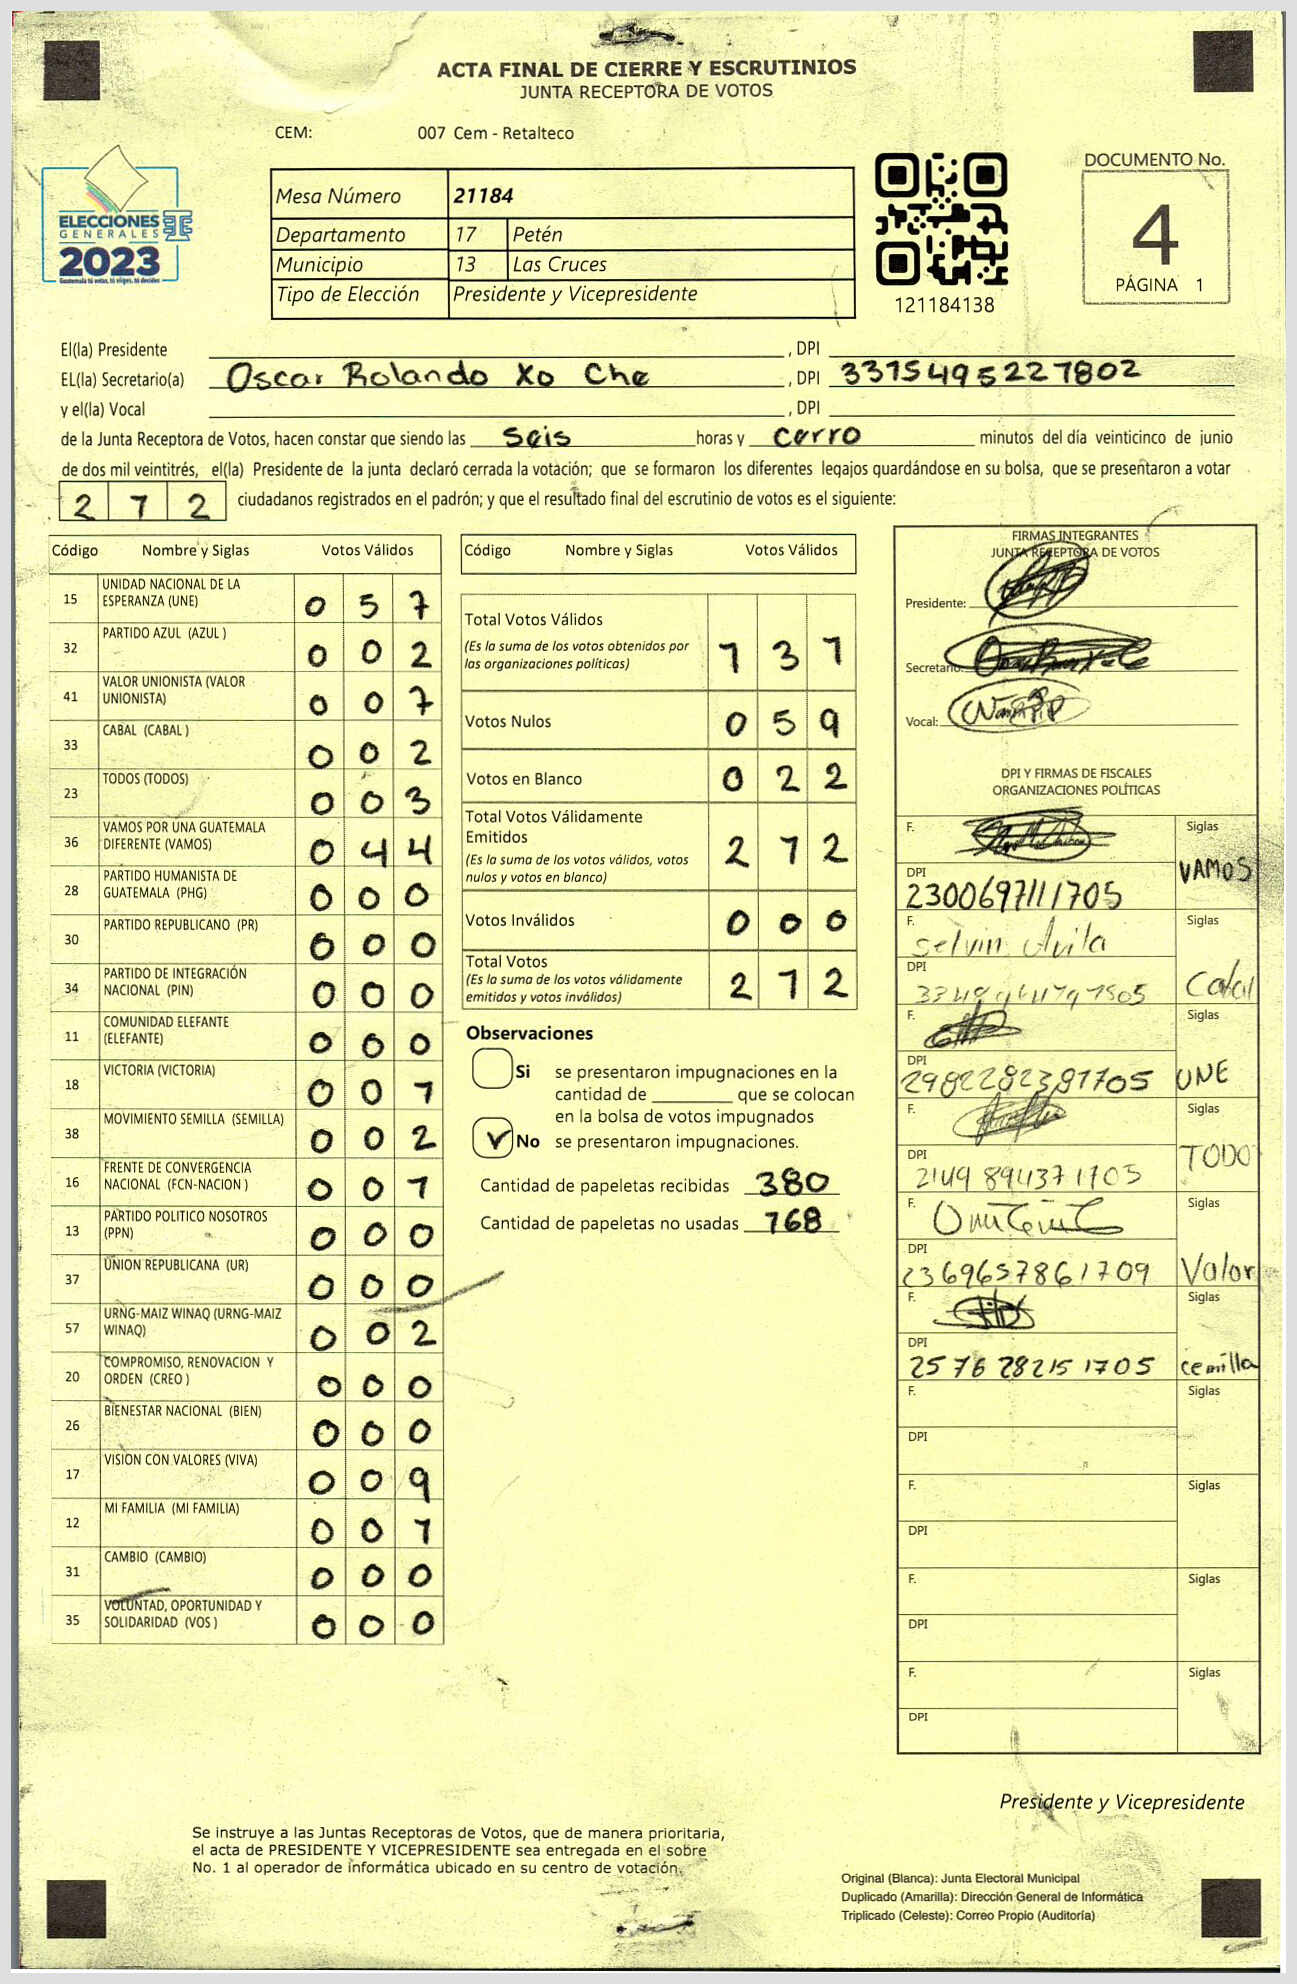 ACTA FINAL DE CIERRE Y ESCRUTINIOS
JUNTA RECEPTORA DE VOTOS
CEM: 007 Cem - Retalteco
ELECCIONES
GENERALES
2023
Guatemala tú votas, tú eliges, tú decides
Mesa Número 21184
Departamento 17 Petén
Municipio 13 Las Cruces
Tipo de Elección Presidente y Vicepresidente
121184138
DOCUMENTO No.
4
PÁGINA 1
El(la) Presidente , DPI
EL(la) Secretario(a) Oscar Rolando Xo Che , DPI 3315495221802
y el(la) Vocal , DPI
de la Junta Receptora de Votos, hacen constar que siendo las seis horas y cerro minutos del día veinticinco de junio
de dos mil veintitrés, el(la) Presidente de la junta declaró cerrada la votación; que se formaron los diferentes legajos guardándose en su bolsa, que se presentaron a votar
2 1 2 ciudadanos registrados en el padrón; y que el resultado final del escrutinio de votos es el siguiente:
Código Nombre y Siglas Votos Válidos
15 UNIDAD NACIONAL DE LA ESPERANZA (UNE) 0 5 7
32 PARTIDO AZUL (AZUL ) 0 0 2
41 VALOR UNIONISTA (VALOR UNIONISTA) 0 0 7
33 CABAL (CABAL ) 0 0 2
23 TODOS (TODOS) 0 0 3
36 VAMOS POR UNA GUATEMALA DIFERENTE (VAMOS) 0 4 4
28 PARTIDO HUMANISTA DE GUATEMALA (PHG) 0 0 0
30 PARTIDO REPUBLICANO (PR) 0 0 0
34 PARTIDO DE INTEGRACIÓN NACIONAL (PIN) 0 0 0
11 COMUNIDAD ELEFANTE (ELEFANTE) 0 0 0
18 VICTORIA (VICTORIA) 0 0 1
38 MOVIMIENTO SEMILLA (SEMILLA) 0 0 2
16 FRENTE DE CONVERGENCIA NACIONAL (FCN-NACION ) 0 0 1
13 PARTIDO POLITICO NOSOTROS (PPN) 0 0 0
37 UNION REPUBLICANA (UR) 0 0 0
57 URNG-MAIZ WINAQ (URNG-MAIZ WINAQ) 0 0 2
20 COMPROMISO, RENOVACION Y ORDEN (CREO ) 0 0 0
26 BIENESTAR NACIONAL (BIEN) 0 0 0
17 VISION CON VALORES (VIVA) 0 0 9
12 MI FAMILIA (MI FAMILIA) 0 0 1
31 CAMBIO (CAMBIO) 0 0 0
35 VOLUNTAD, OPORTUNIDAD Y SOLIDARIDAD (VOS ) 0 0 0
Código Nombre y Siglas Votos Válidos
Total Votos Válidos 1 3 1
(Es la suma de los votos obtenidos por
las organizaciones políticas)
Votos Nulos 0 5 9
Votos en Blanco 0 2 2
Total Votos Válidamente
Emitidos 2 1 2
(Es la suma de los votos válidos, votos
nulos y votos en blanco)
Votos Inválidos 0 0 0
Total Votos 2 1 2
(Es la suma de los votos válidamente
emitidos y votos inválidos)
Observaciones
Si se presentaron impugnaciones en la
cantidad de ________ que se colocan
en la bolsa de votos impugnados
No se presentaron impugnaciones.
Cantidad de papeletas recibidas 380
Cantidad de papeletas no usadas 168
FIRMAS INTEGRANTES
JUNTA RECEPTORA DE VOTOS
Presidente:
Secretario:
Vocal:
DPI Y FIRMAS DE FISCALES
ORGANIZACIONES POLÍTICAS
F. Siglas
DPI 2300697111705 VAMOS
F. Selvin Avila Siglas
DPI Cabal
F. Siglas
DPI 2982282381705 UNE
F. Siglas
DPI 2149894371705 TODO
F. Siglas
DPI 2369657861709 Valor
F. Siglas
DPI 2576282151705 cemilla
F. Siglas
DPI
F. Siglas
DPI
F. Siglas
DPI
F. Siglas
DPI
Presidente y Vicepresidente
Se instruye a las Juntas Receptoras de Votos, que de manera prioritaria,
el acta de PRESIDENTE Y VICEPRESIDENTE sea entregada en el sobre
No. 1 al operador de informática ubicado en su centro de votación.
Original (Blanca): Junta Electoral Municipal
Duplicado (Amarilla): Dirección General de Informática
Triplicado (Celeste): Correo Propio (Auditoría)